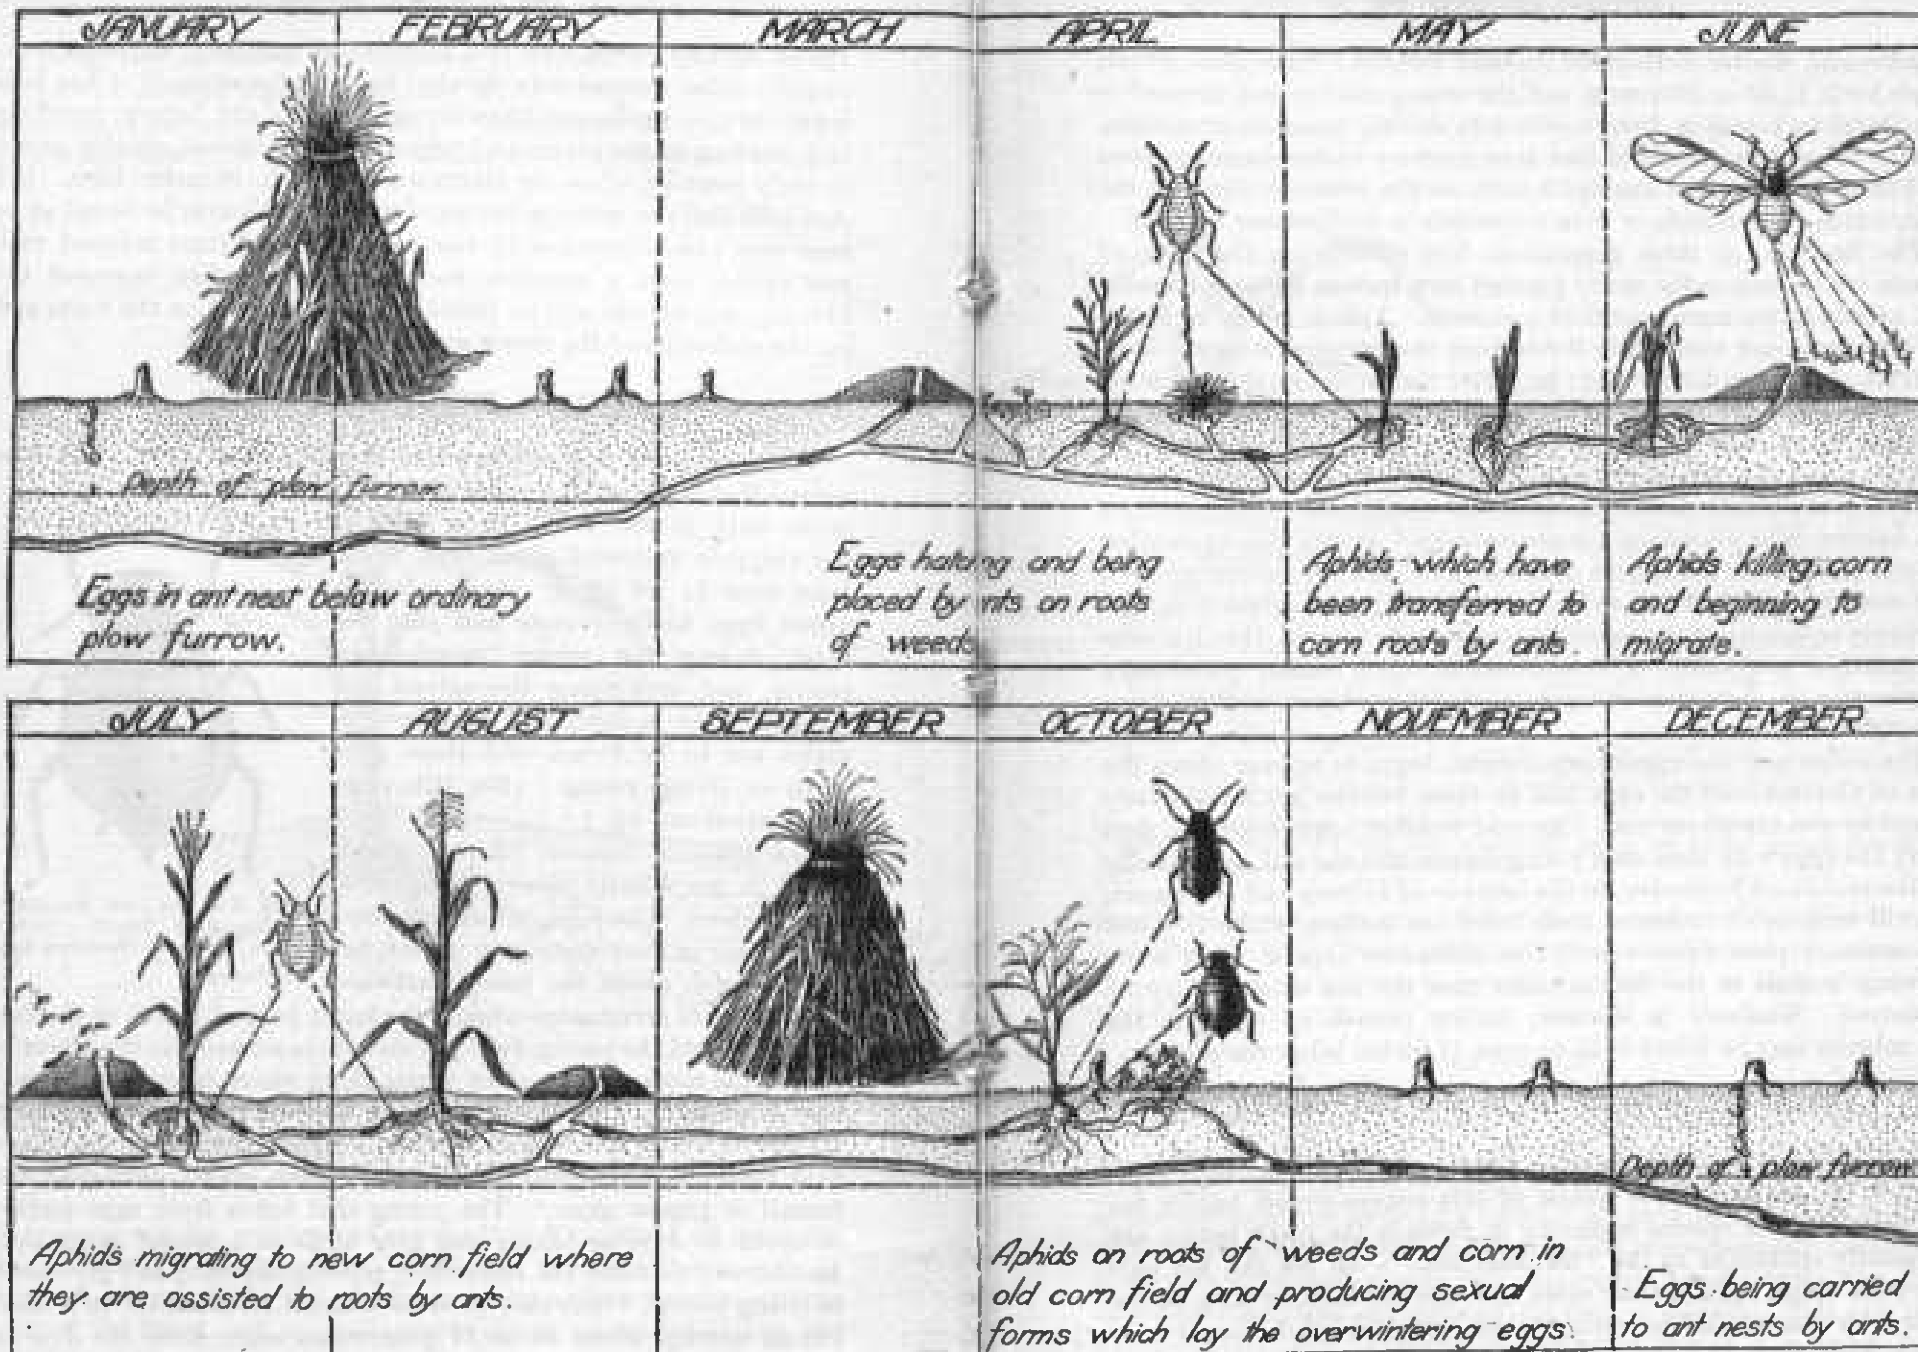 JANUARY FEBRUARY MARCH APRIL MAY JUNE
Depth of plow furrow
Eggs in ant nest below ordinary
plow furrow.
Eggs hatching and being
placed by ants on roots
of weeds
Aphids which have
been transferred to
corn roots by ants.
Aphids killing corn
and beginning to
migrate.
JULY AUGUST SEPTEMBER OCTOBER NOVEMBER DECEMBER
Depth of plow furrow
Aphids migrating to new corn field where
they are assisted to roots by ants.
Aphids on roots of weeds and corn in
old corn field and producing sexual
forms which lay the overwintering eggs.
Eggs being carried
to ant nests by ants.